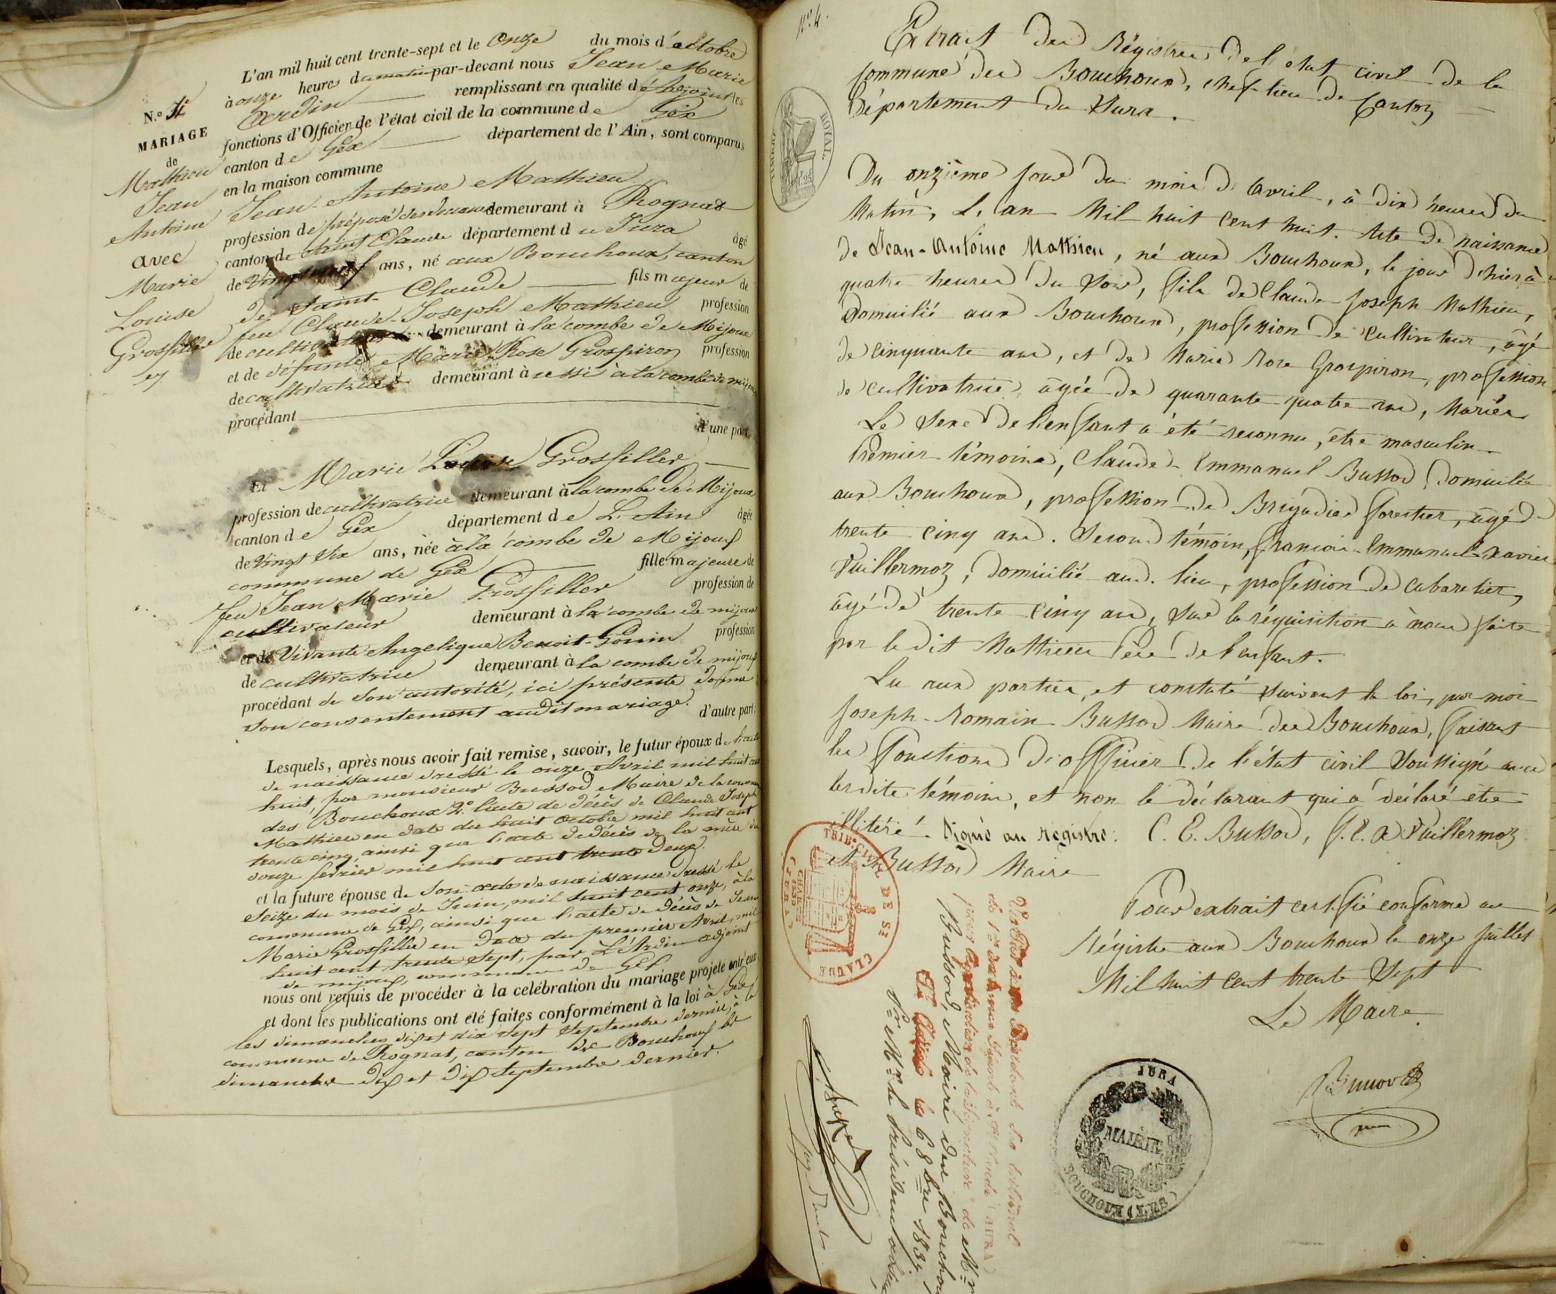 L'an mil huit cent trente-sept et le onze du mois d'octobre
à onze heures du matin par-devant nous Jean Marie
remplissant en qualité d'adjoint les
fonctions d'Officier de l'état civil de la commune de Gex
canton de Gex département de l'Ain, sont comparus
en la maison commune
N.º 4
MARIAGE
de
Mathieu
Jean
Antoine
avec
Marie
Louise
Grosfiller
Jean Antoine Mathieu
profession de préposé des Douanes demeurant à Rognat
canton de Saint Claude département du Jura âgé
de vingt neuf ans, né aux Bouchoux, canton
de Saint Claude fils majeur de
feu Claude Joseph Mathieu profession
de cultivateur demeurant à la combe de Mijoux
et de défunte Marie Rose Grospiron profession
de cultivatrice demeurant à aussi à la combe de mijoux
procédant d'une part,
Et Marie Louise Grosfiller
profession de cultivatrice demeurant à la combe de Mijoux
canton de Gex département de L'Ain âgée
de vingt six ans, née à la combe de Mijoux
commune de Gex fille majeure de
feu Jean Marie Grosfiller profession de
cultivateur demeurant à la combe de mijoux
et de Vivante Angelique Benoit-Gonin profession
de cultivatrice demeurant à la combe de mijoux
procédant de son autorité, ici présente donne
son consentement audit mariage. d'autre part.
Lesquels, après nous avoir fait remise, savoir, le futur époux de l'acte
de naissance dressé le onze Avril mil huit cent
huit, par monsieur Bussod Maire de la commune
des Bouchoux 2º l'acte de décès de Claude Joseph
Mathieu en date du huit octobre mil huit cent
trente cinq ainsi que l'acte de décès de la mère du
douze février mil huit cent trente deux.
et la future épouse de son acte de naissance dressé le
seize du mois de Juin, mil huit cent onze, à la
commune de Gex, ainsi que l'acte de décès de Jean
Marie Grosfiller en date du premier Avril, mil
huit cent trente sept, par L'Ardin adjoint
de mijoux commune de Gex
nous ont requis de procéder à la célébration du mariage projeté entr'eux
et dont les publications ont été faites conformément à la loi à Gex
les dimanches dix et dix sept septembre dernier, à la
commune de Rognat, canton des Bouchoux les
dimanches dix et dix septembre dernier.
Nº 4.
Extrait des Régistres de l'état civil de la
Commune des Bouchoux, chef-lieu de Canton
Département du Jura.
TIMBRE ROYAL
Du onzième jour du mois d'avril, à dix heures du
Matin, L'an Mil huit cent huit. Acte de naissance
de Jean-Antoine Mathieu, né aux Bouchoux, le jour d'hier à
quatre heures du soir, fils de Claude Joseph Mathieu,
Domicilié aux Bouchoux, profession de cultivateur, âgé
de cinquante ans, et de Marie Rose Grospiron, profession
de cultivatrice, âgée de quarante quatre ans, Mariés
Le sexe de l'enfant a été reconnu, être masculin.
Premier témoins, Claude-Emmanuel Bussod, domicilié
aux Bouchoux, profession de Brigadier forestier, âgé de
trente cinq ans. Second témoin, françois-Emmanuel-xavier
Vuillermoz, domicilié aud. lieu, profession de cabaretier,
âgé de trente cinq ans, sur la réquisition à nous faite
par ledit Mathieu père de l'enfant.
Lu aux parties, et constaté suivant la loi, par moi
Joseph-Romain Bussod Maire des Bouchoux, faisant
les fonctions d'officier de l'état civil soussigné avec
lesdits témoins, et non le déclarant qui a déclaré etre
illitéré. Signé au registre: C. E. Bussod, f. E. x Vuillermoz
et Bussod Maire
Pour extrait certifié conforme au
Régistre aux Bouchoux le onze Juillet
Mil huit cent trente Sept
Le Maire
TRIB. CIVIL DE St CLAUDE
(JURA)
Vu par nous Président du tribunal
de 1re instance séant à St Claude (JURA)
pour légalisation de la signature de Mr
Bussod, Maire des Bouchoux
St Claude le 6 8bre 1837
Pr Mr le président
JURA
MAIRIE
BOUCHOUX (LES)